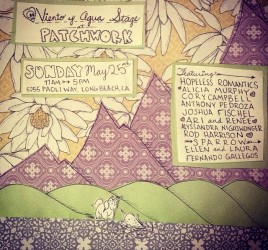 @ Viento y Agua Stage
at
PATCHWORK
SUNDAY May 25th
11AM → 5PM
PAOLI WAY, LONG BEACH, CA
Featuring
HOPELESS ROMANTICS
ALICIA MURPHY
CORY CAMPBELL
ANTHONY PEDROZA
JOSHUA FISCHEL
ARI and RENEE
ALYSSANDRA NIGHSWONGER
ROD HARRISON
SPARROW
ELLEN and LAURA
FERNANDO GALLEGOS